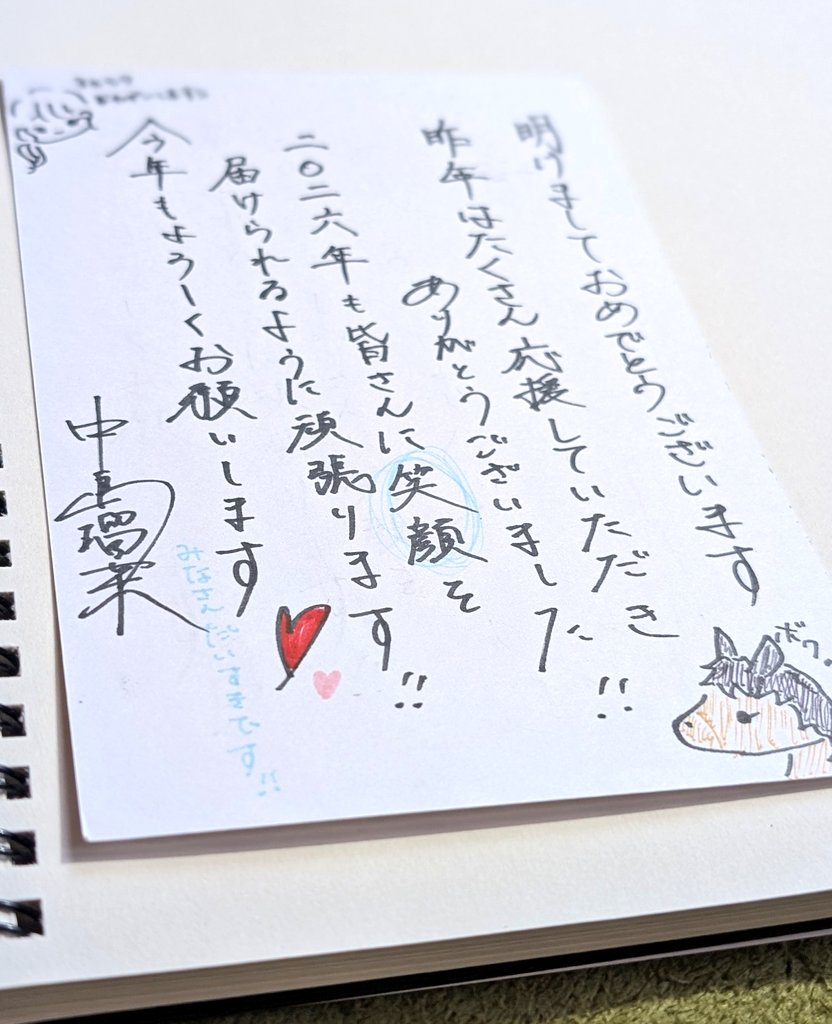 明けましておめでとうございます
昨年はたくさん応援していただき
ありがとうございました!!
二〇二六年も皆さんに笑顔を
届けられるように頑張ります!!
今年もよろしくお願いします
中島瑠菜
みなさんだいすきです!!
ボク。